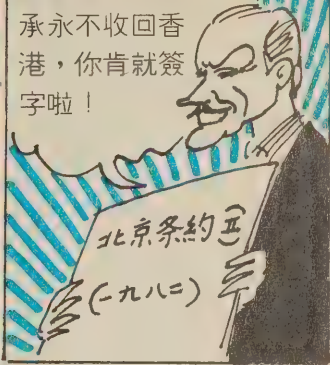 承永不收回香
港，你肯就簽
字啦！
北京条約〔II〕
(一九八二)